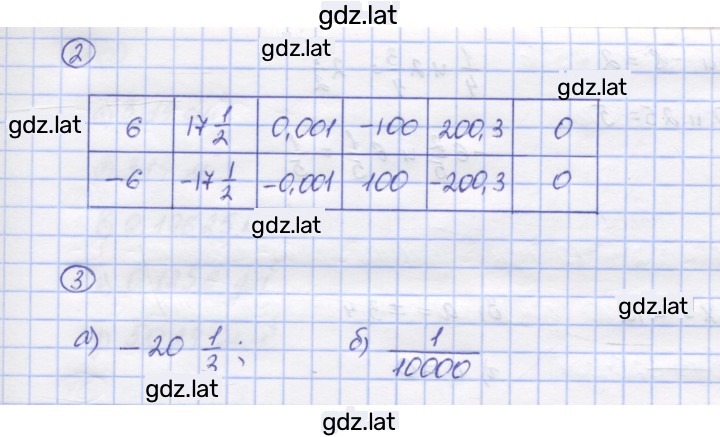 gdz.lat
2
gdz.lat
gdz.lat
gdz.lat
6 17 1/2 0,001 -100 200,3 0
-6 -17 1/2 -0,001 100 -200,3 0
gdz.lat
3
gdz.lat
а) -20 1/2; б) 1/10000
gdz.lat
gdz.lat